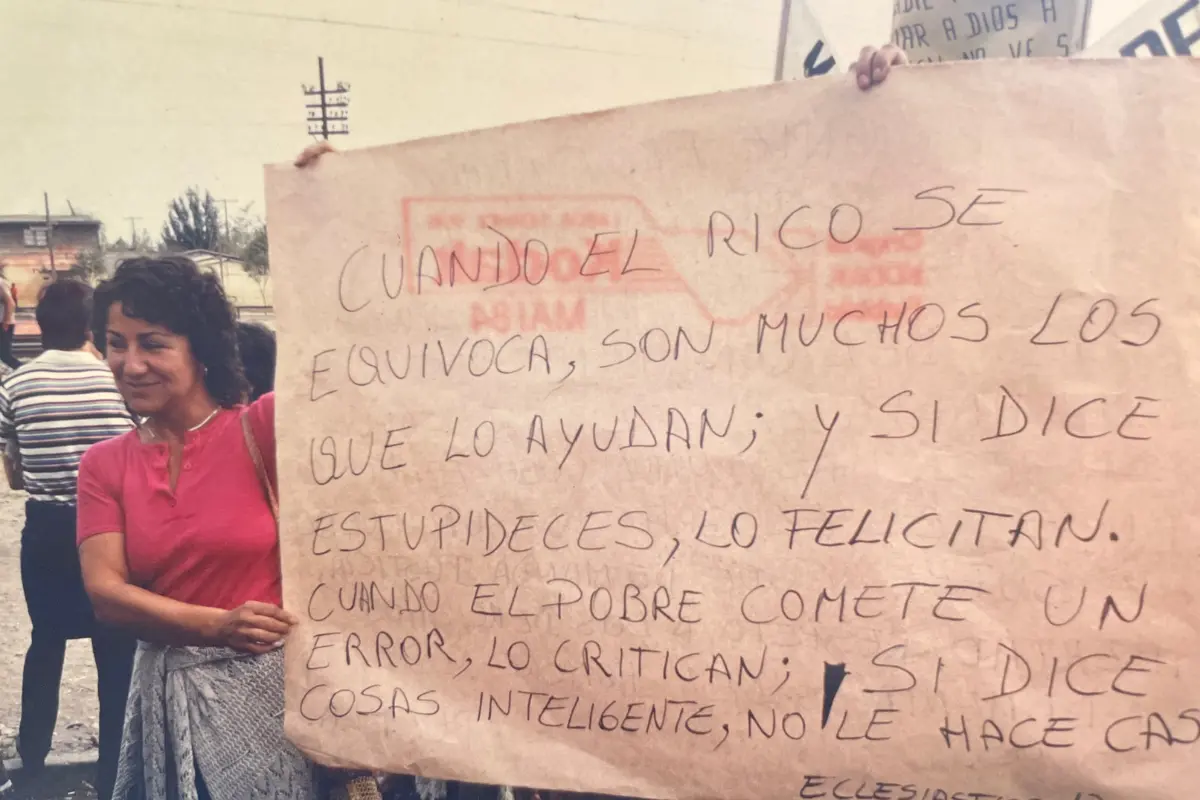 AR A DIOS A
NO VE S
DE
CUANDO EL RICO SE
EQUIVOCA, SON MUCHOS LOS
QUE LO AYUDAN; Y SI DICE
ESTUPIDECES, LO FELICITAN.
CUANDO EL POBRE COMETE UN
ERROR, LO CRITICAN; SI DICE
COSAS INTELIGENTE, NO LE HACE CAS
MAI 84